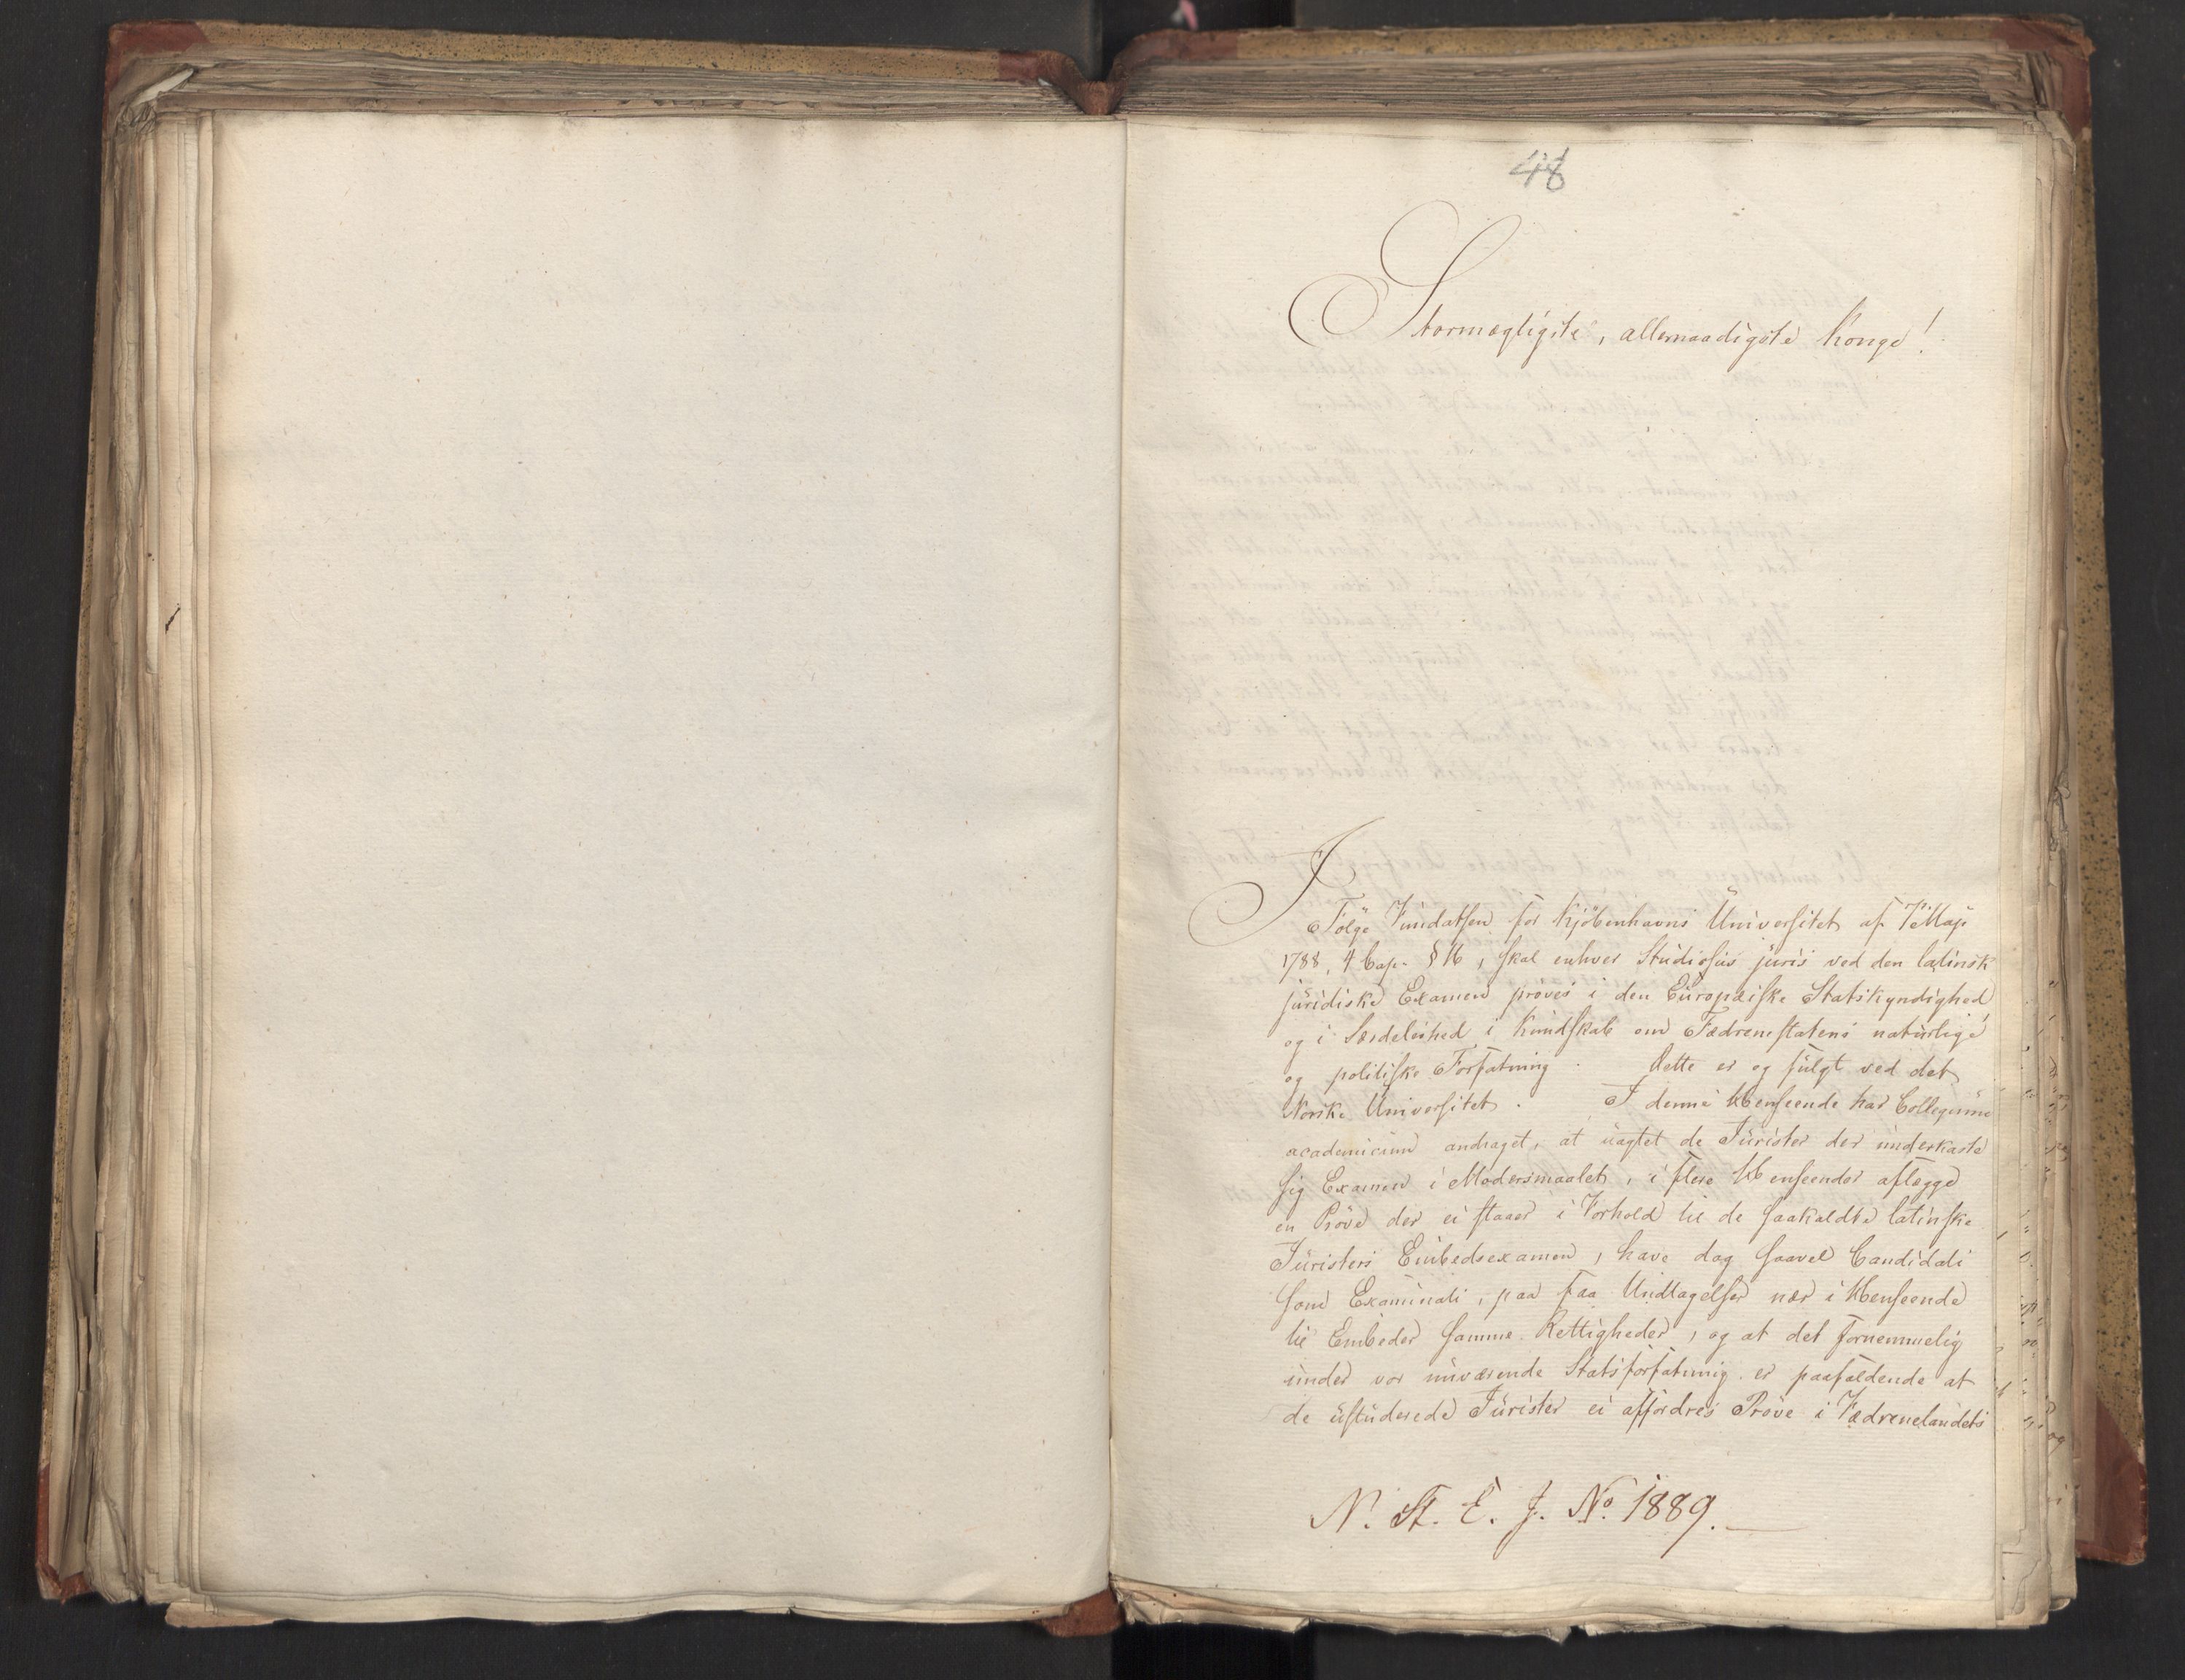 48
Stormægtigste, allernaadigste Konge!
I
Følge Fundatsen for Kjøbenhavns Universitet af 7 Maji
1788, 4 Cap. § 16, skal enhver Studiosus juris ved den latinsk
juridiske Examen prøves i den Europæiske Statskyndighed
og i Særdeleshed i Kundskab om Fædrenestatens naturlige
og politiske Forfatning. Dette er og fulgt ved det
Norske Universitet. I denne Henseende har Collegium
academicum andraget, at uagtet de Jurister der underkaste
sig Examen i Modersmaalet, i flere Henseender aflægge
en Prøve der ei staaer i Forhold til de saakaldte latinske
Juristers Embedsexamen, have dog saavel Candidati
som Examinati, paa faa Undtagelser nær i Henseende
til Embeder samme Rettigheder, og at det fornemmelig
under vor nuværende Statsforfatning er paafaldende at
de ustuderede Jurister ei affordres Prøve i Fædrenelandets
N. St. E. J. No. 1889.